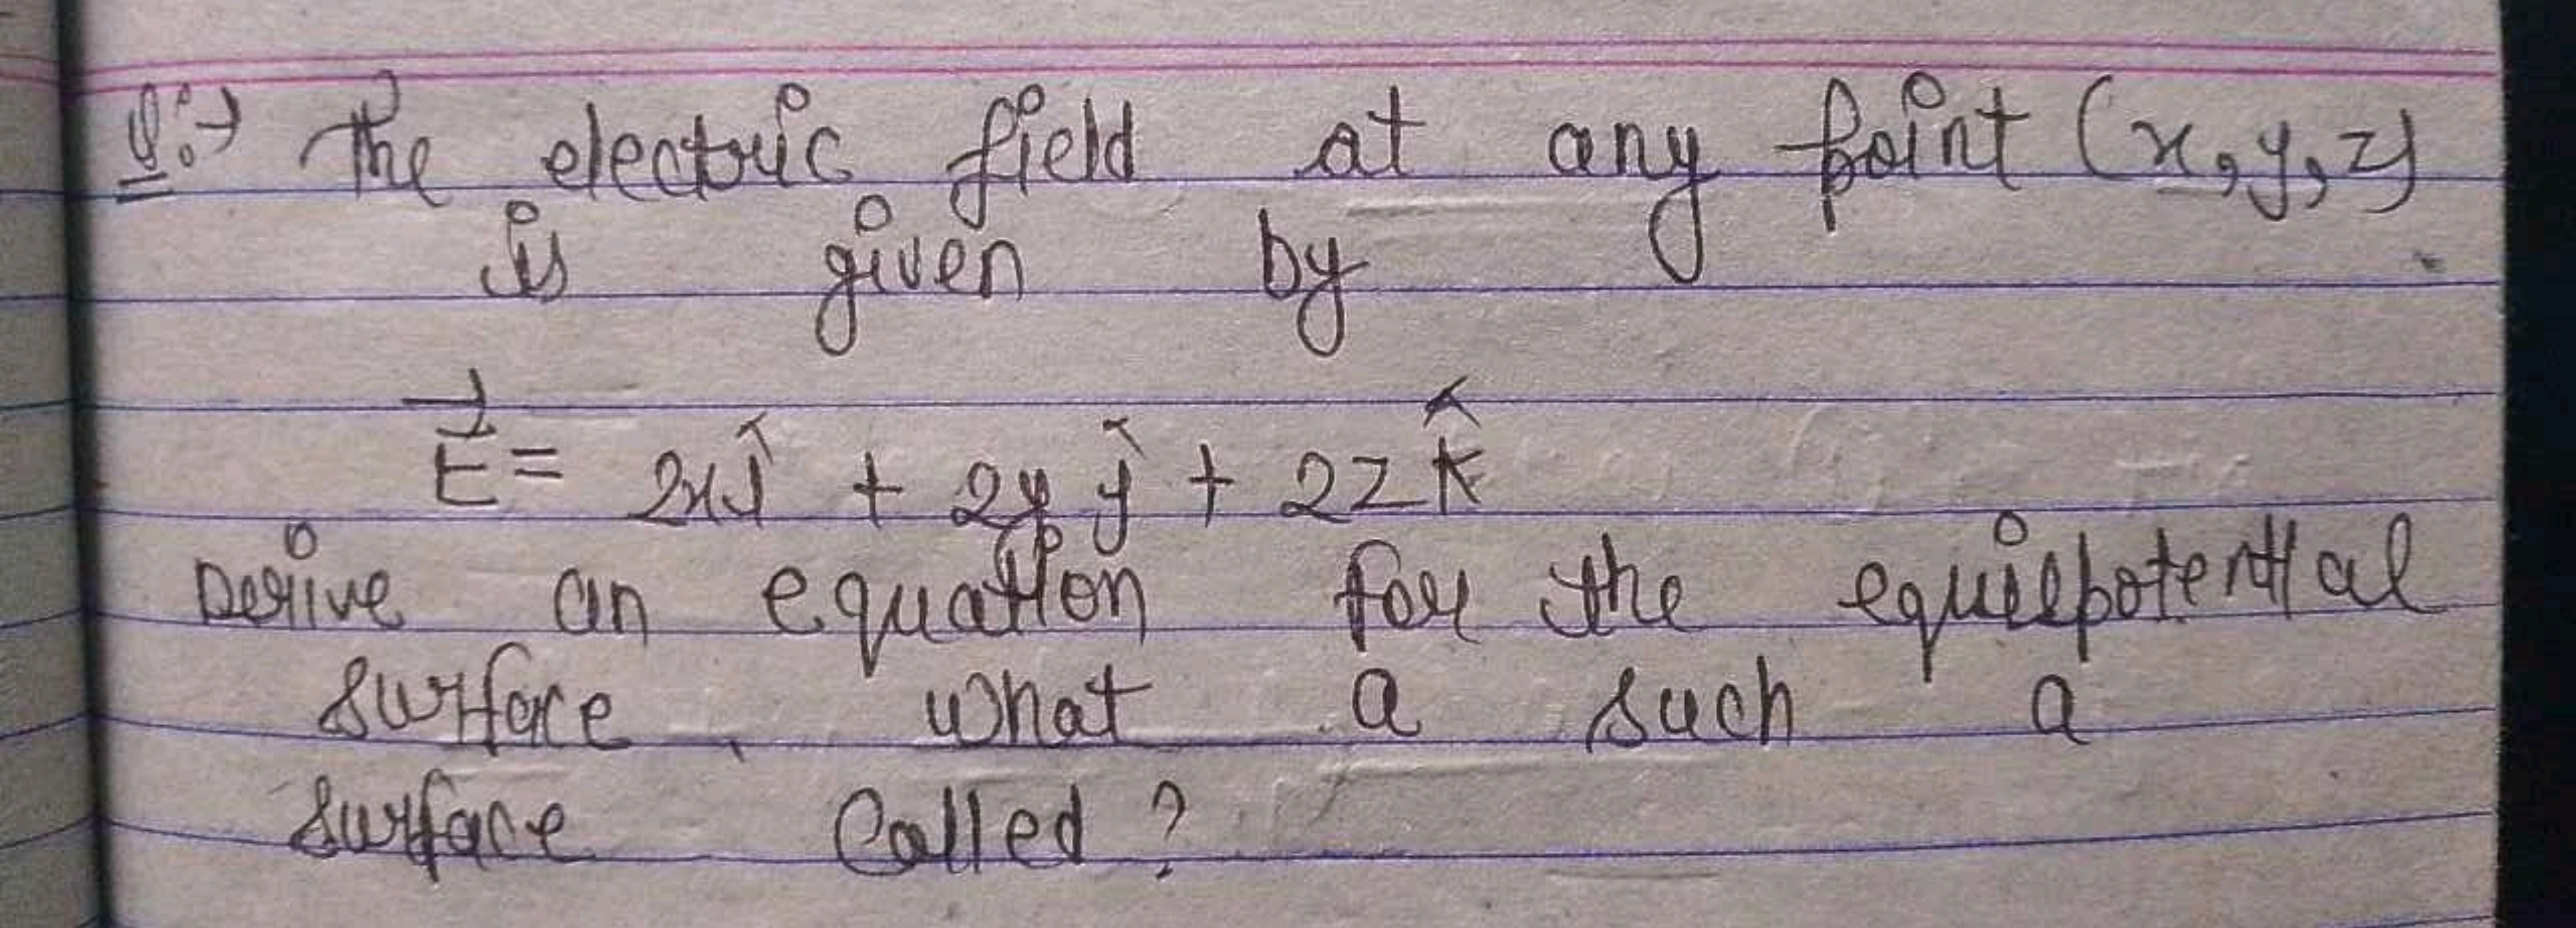 Q:→ The electric field at any point (x,y,z)
is given by
E⃗ = 2xĵ + 2yĵ + 2zk̂
Derive an equation for the equilpotential
surface, what a such a
surface called?